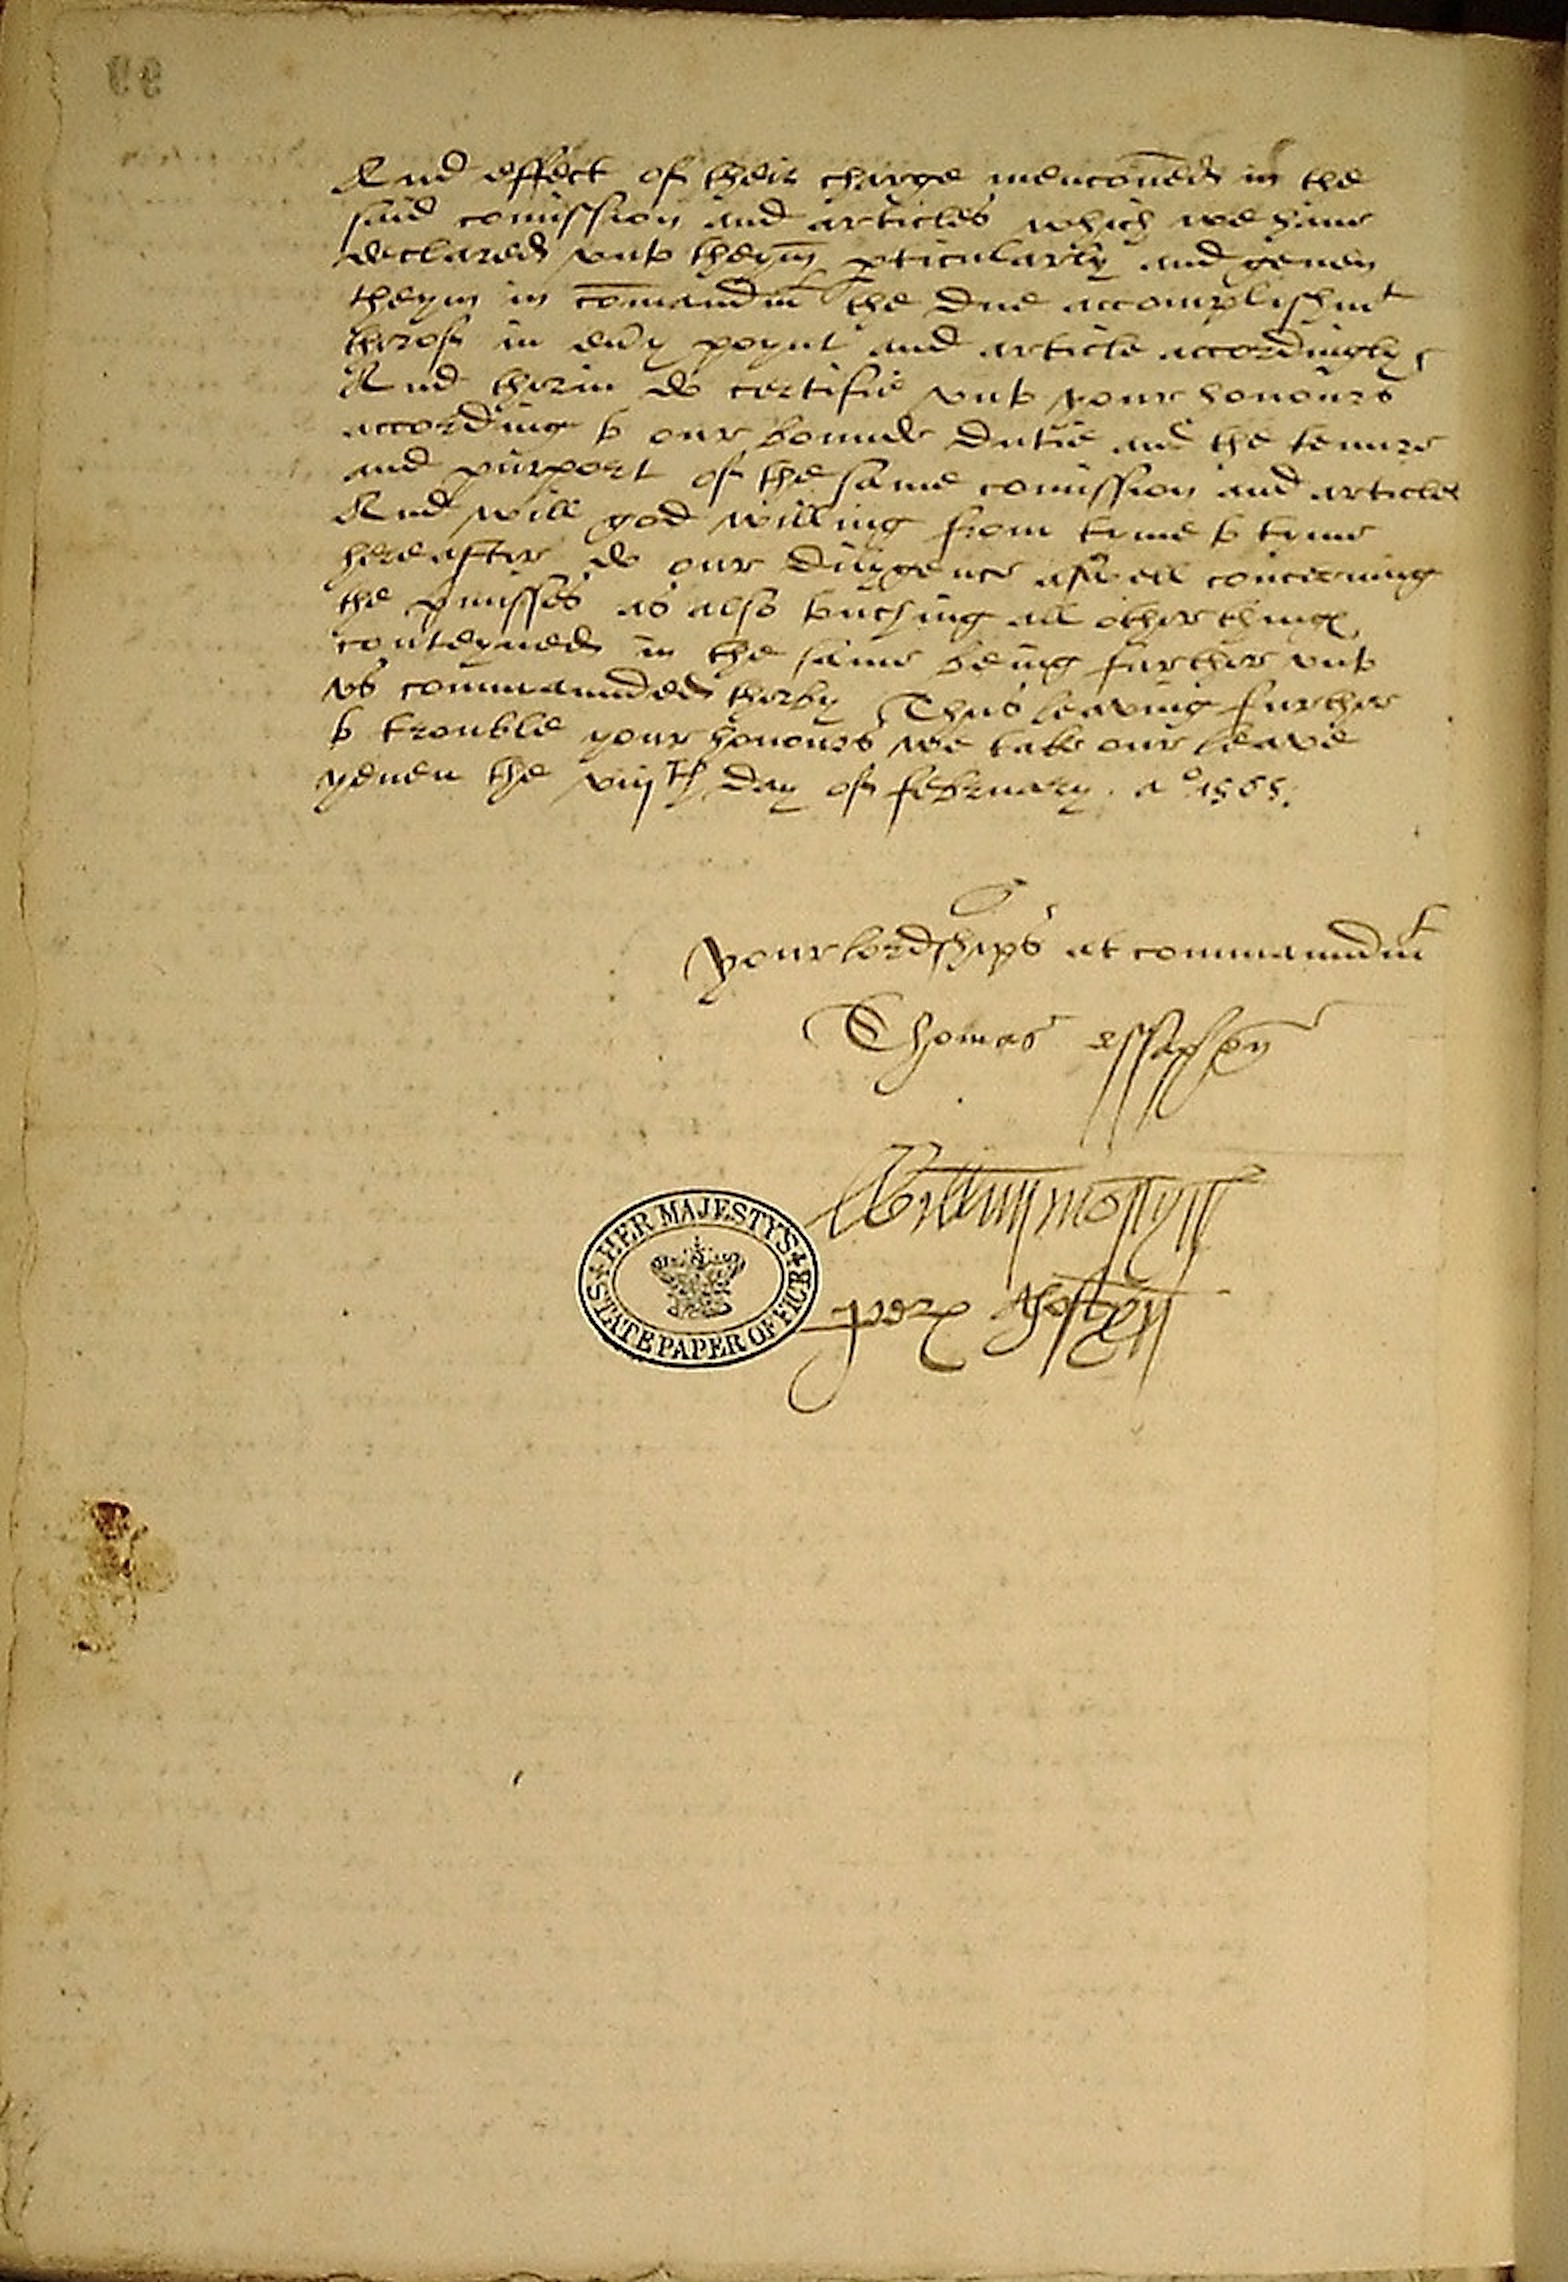 And effect of their charge menconed in the
said comission and articles which we have
declared unto theym pticularly and geven
theym in comandmt the due accomplishmt
therof in evy poynt and article accordingly
And therin do certifie unto your honours
according to our bounde dutie and the tenure
and purport of the same comission and articles
And will god willing from tyme to tyme
hereafter do our diligence aswell concerning
the pmisses as also touching all other things
conteyned in the same being further unto
us commaunded therby Thus leaving further
to trouble your honours we take our leave
yeven the viijth day of february ao 1565.
your lordships at commaundmt
Thomas
Wyllm mostyn
HER MAJESTY'S
STATE PAPER OFFICE